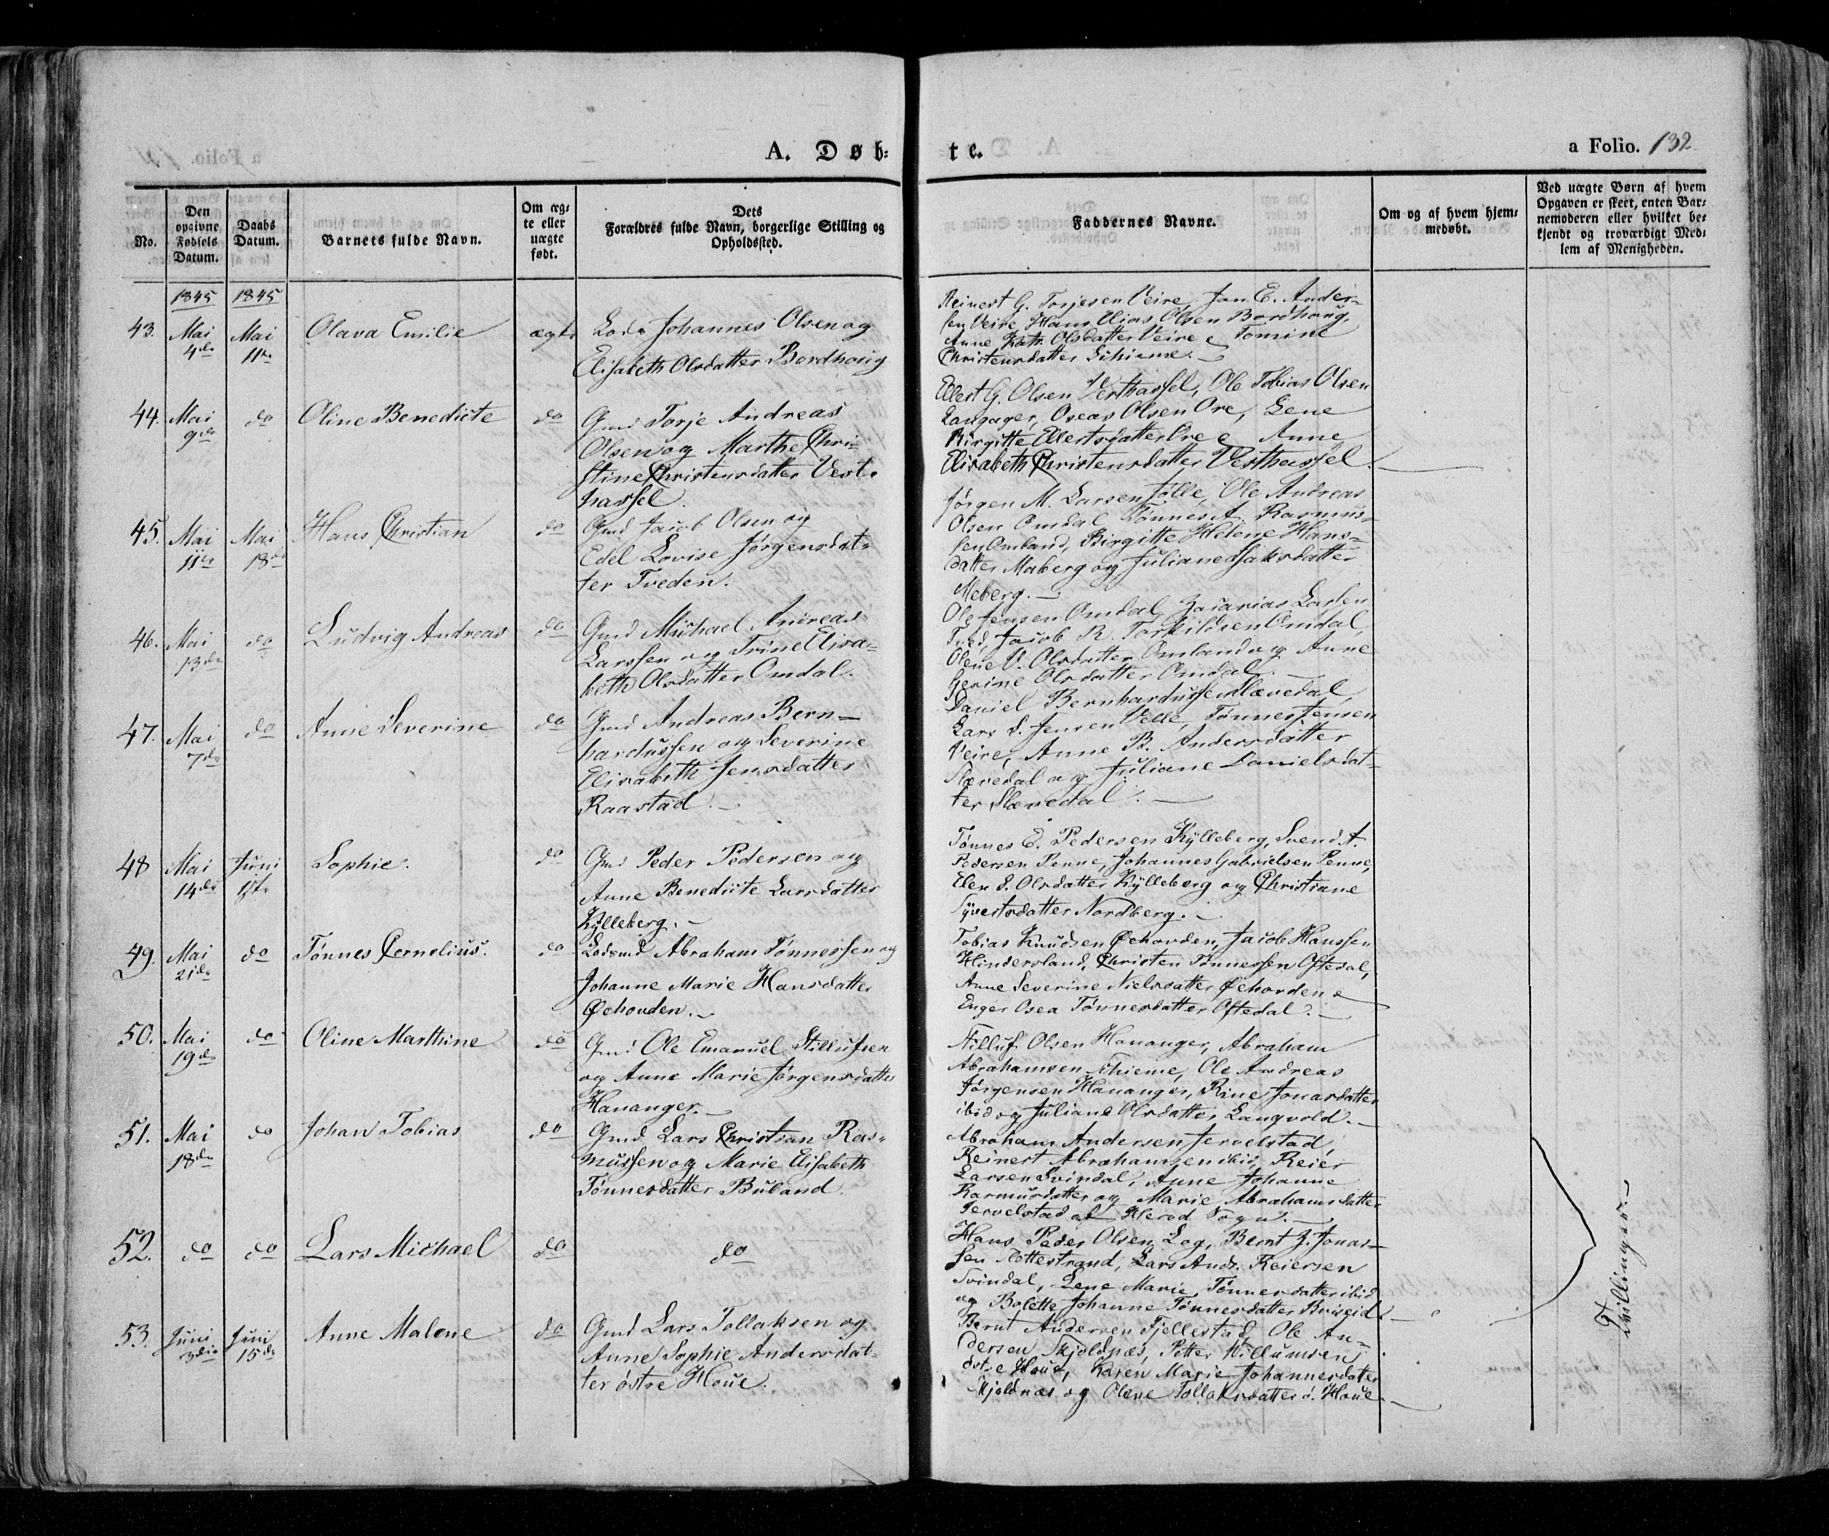 A. Døb-
te.
a Folio. 132
No.
Den
opgivne
Fødsels
Datum.
Daabs
Datum.
Barnets fulde Navn.
Om æg-
te eller
uægte
født.
Dets
Forældres fulde Navn, borgerlige Stilling og
Opholdssted.
Faddernes Navne.
Om og af hvem hjem-
medøbt.
Ved uægte Børn af hvem
Opgaven er skeet, enten Bar-
nemoderen eller hvilket be-
kjendt og troværdigt Med-
lem af Menigheden.
1845 1845
43. Mai 4de Mai 11te Olava Emilie ægte
Lods Johannes Olsen og
Elisabeth Olsdatter Bordhoug
Reinert G. Torjesen Veire, Jan E. Ander-
sen Veire, Hans Elias Olsen Bordhoug,
Anne Kath. Olsdatter Veire & Tomine
Christensdatter Schieme.
44. Mai 9de do Oline Benedicte do
Gmd Torje Andreas
Olsen og Marthe Chri-
stine Christensdatter Vest-
hassel.
Ellert G. Olsen Vesthassel, Ole Tobias Olsen
Langager, Oseas Olsen Ore, Lene
Birgitte Ellertsdatter Ore & Anne
Elisabeth Christensdatter Vesthassel.
45. Mai 11te Mai 18de Hans Christian do
Gmd Jacob Olsen og
Edel Lovise Jørgensdat-
ter Tveden.
Jørgen M. Larsen Jølle, Ole Andreas
Olsen Omdal Tønnes A. Rasmus-
sen Omland, Birgitte Helene Hans-
datter Maberg og Juliane Isaksdatter
Meberg.
46. Mai 13de do Ludvig Andreas do
Gmd Michael Andreas
Larssen og Trine Elisa-
beth Olsdatter Omdal.
Ole Jensen Omdal, Zacarias Larsen
Tved, Jacob R. Torkildsen Omdal,
Olene V. Olsdatter Omland og Anne
Gerine Olsdatter Omdal.
47. Mai 7de do Anne Severine do
Gmd Andreas Bern-
hardussen og Severine
Elisabeth Jensdatter
Raastad.
Daniel Bernhardussen Slævdal,
Lars S. Jensen Velle, Tønnes Jensen
Veire, Anne B. Andersdatter
Slævedal og Juliane Danielsdat-
ter Slævedal.
48 Mai 14de Juni 1ste Sophie. do
Gmd Peder Pedersen og
Anne Benedicte Larsdatter
Kylleberg.
Tønnes E. Pedersen Kylleberg, Svend A.
Pedersen Penne, Johannes Gabrielsen Penne,
Elen S. Olsdatter Kylleberg og Christiane
Syvertsdatter Nordberg.
49. Mai 21de do Tønnes Cornelius. do
Lodsmd Abraham Tønnessen og
Johanne Marie Hansdatter
Øehovden.
Tobias Knudsen Øehovden, Jacob Hanssen
Hindersland, Christen Tønnessen Oftedal,
Anne Severine Nielsdatter Øehovden &
Enger Osea Tønnesdatter Oftedal.
50. Mai 19de do Oline Marthine do
Gmd Ole Emanuel Stillufsen
og Anne Marie Jørgensdatter
Hananger.
Tilluf Olsen Hananger, Abraham
Abrahamsen Schieme, Ole Andreas
Jørgensen Hananger, Rine Jonasdatter
ibid og Juliane Olsdatter Langvold.
51. Mai 18de do Johan Tobias do
Gmd Lars Christian Ras-
mussen og Marie Elisabeth
Tønnesdatter Buland.
Abraham Andersen Jervelstad,
Reinert Abrahamsen ibid, Reier
Larsen Svindal, Anne Johanne
Rasmusdatter og Marie Abrahamsdatter
Jervelstad af Herod Sogn.
52. do do Lars Michael do
do
Hans Peder Olsen Log, Bernt J. Jonas-
sen Aottestrand, Lars Ands. Reiersen
Svindal, Lene Marie Tønnesdatter ibid
og Bolette Johanne Tønnesdatter Briseid.
Tvillinger.
53. Juni 3die Juni 15de Anne Malene do
Gmd Lars Tollaksen og
Anne Sophie Andersdat-
ter østre Houe.
Bernt Andersen Fjellestad, Ole An-
dersen Skjoldnæs, Petter Villumsen
østre Houe, Karen Marie Johannesdatter
Skjoldnæs og Olene Tollaksdatter ø. Houe